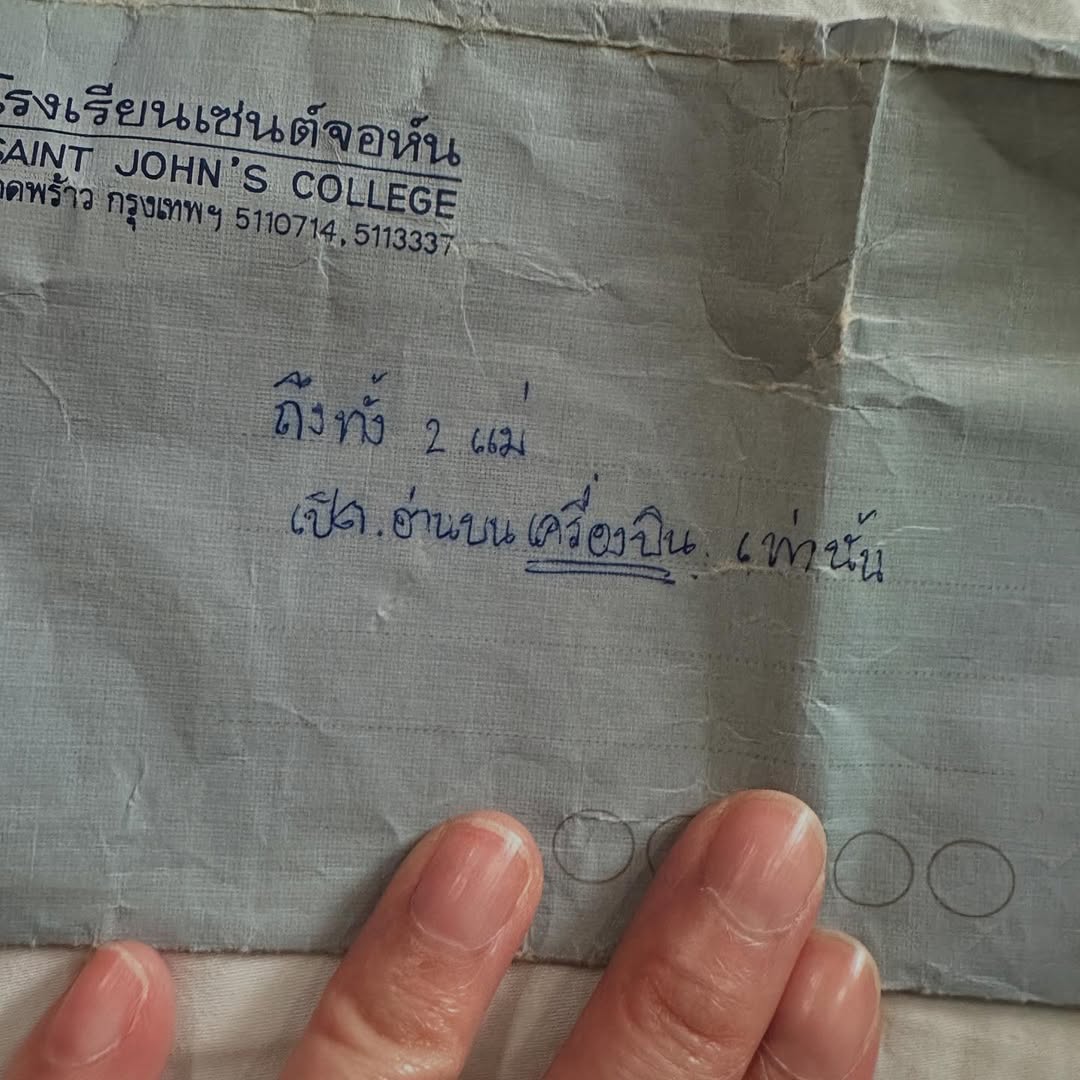 โรงเรียนเซนต์จอห์น
SAINT JOHN'S COLLEGE
ลาดพร้าว กรุงเทพฯ 5110714, 5113337
ถึงทั้ง 2 แม่
เปิด.อ่านบนเครื่องบิน. เท่านั้น